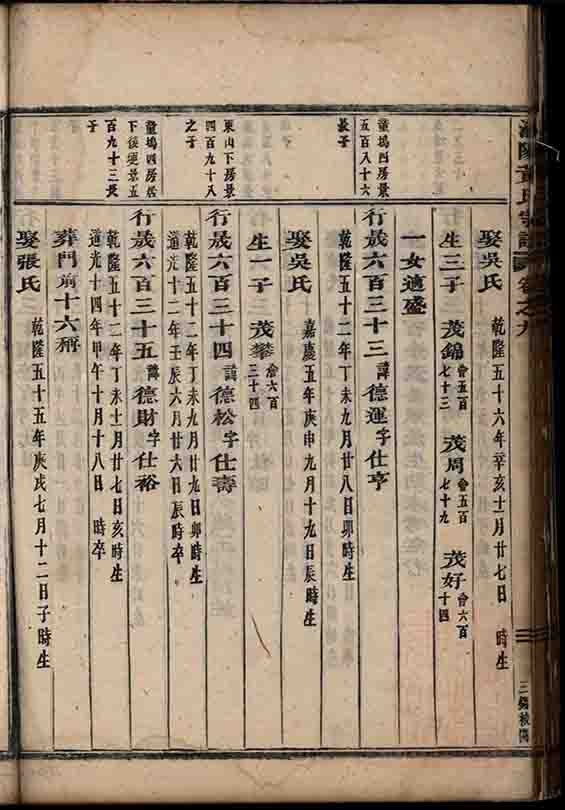 陽黃氏宗譜 卷之九
三錫
娶吳氏 乾隆五十六年辛亥十一月廿七日 時生
生三子 茂錦 會五百七十三 茂周 會五百七十九 茂好 會六百十四
一女適盛
童塢西房景五百八十六長子
行晟六百三十三 諱德運字仕亨
乾隆五十二年丁未九月廿八日卯時生
娶吳氏 嘉慶五年庚申九月十九日辰時生
生一子 茂攀 會六百三十四
東山下房景四百九十八之子
行晟六百三十四 諱德松字仕壽
乾隆五十二年丁未九月廿九日卯時生
道光十二年壬辰六月廿六日辰時卒
童塢西房居下後塋景五百九十三長子
行晟六百三十五 諱德財字仕裕
乾隆五十二年丁未十一月廿七日亥時生
道光十四年甲午十月十八日 時卒
葬門前十六
娶張氏 乾隆五十五年庚戌七月十二日子時生